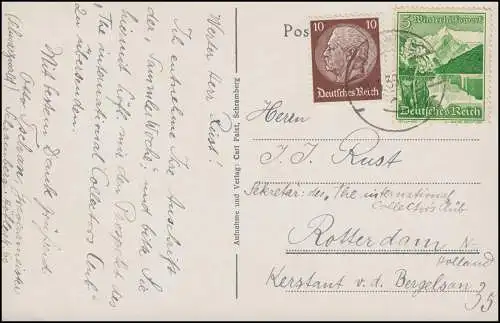 Werter Herr Rust!
Ich entnehme Ihre Anschrift
der "Sammler Woche" und bitte Sie
hiermit höfl. mir den Prospekt des
"The international Collectors Club"
zu übersenden.
Mit bestem Danke grüßend
Otto
Schramberg
Aufnahme und Verlag: Carl Faist, Schramberg
Pos
10 10
Deutsches Reich
5 Winterhilfswerk
Deutsches Reich
Herrn
J. J. Rust
Sekretär des „The international
Collectors Club
Rotterdam
Holland
Kerstant v. d. Bergelsan
35